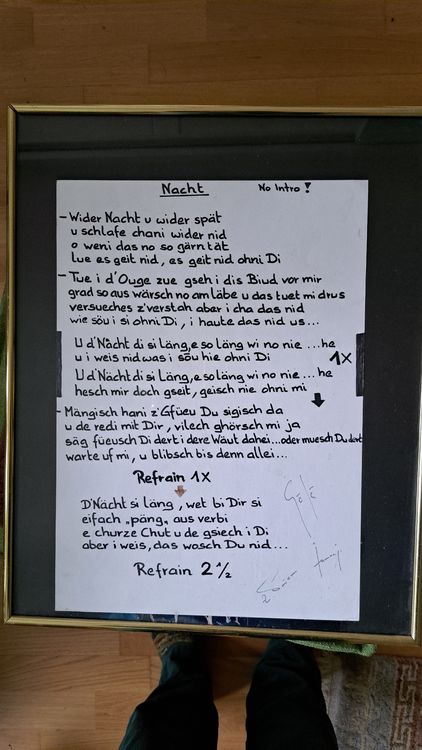 Nacht
No Intro !
- Wider Nacht u wider spät
u schlafe chani wider nid
o weni das no so gärn tät
lue es geit nid, es geit nid ohni Di
- Tue i d'Ouge zue gseh i dis Biud vor mir
grad so aus wärsch no am läbe u das tuet mi drus
versueches z'verstah aber i cha das nid
wie söu i si ohni Di, i haute das nid us...
U d'Nächt di si Läng, e so läng wi no nie ...he
u i weis nid was i söu hie ohni Di
1X
U d'Nächt di si Läng, e so läng wi no nie ... he
hesch mir doch gseit, geisch nie ohni mi
- Mängisch hani z'Gfüeu Du sigisch da
u de redi mit Dir, vilech ghörsch mi ja
säg füeusch Di dert i dere Wäut dahei...oder muesch Du dert
warte uf mi, u blibsch bis denn allei...
Refrain 1X
D'Nächt si läng, wet bi Dir si
eifach "päng" aus verbi
e churze Chut u de gsiech i Di
aber i weis, das wosch Du nid...
Refrain 2 1/2